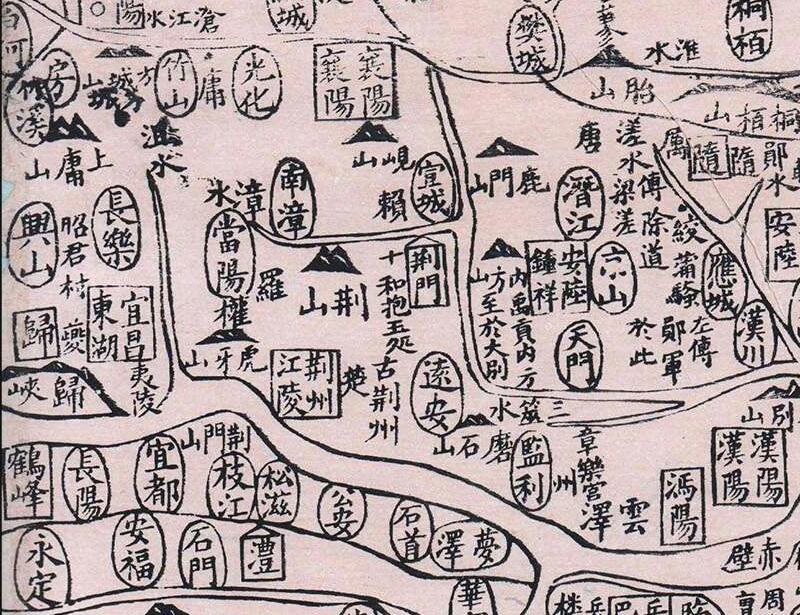 滄江水
樊城
桐栢
淮水
房
方城山
竹山
庸
光化
襄陽
襄陽
胎山
桐栢山
竹溪
上庸山
沮水
峴山
宣城
鹿門山
唐
溠水
梁溠
厲
隨
隨
鄖
水
長樂
興山
昭君村
南漳
漳水
賴
潛江
傅除道
絞
蒲騷
安陸
當陽
權
羅
荆山
荆門
卞和抱玉处
内方山
禹貢内方至於大別
安陸
鍾祥
京山
應城
左傳鄖軍於此
漢川
歸
夔
宜昌
東湖
夷陵
虎牙山
荆州
江陵
楚
古荆州
天門
遠安
歸峽
三澨水
磨石山
別山
荆門山
鶴峰
長陽
宜都
枝江
松滋
公安
石首
監利
州
章華宫
雲澤
沔陽
漢陽
漢陽
赤壁
夢澤
永定
安福
石門
澧
華
周